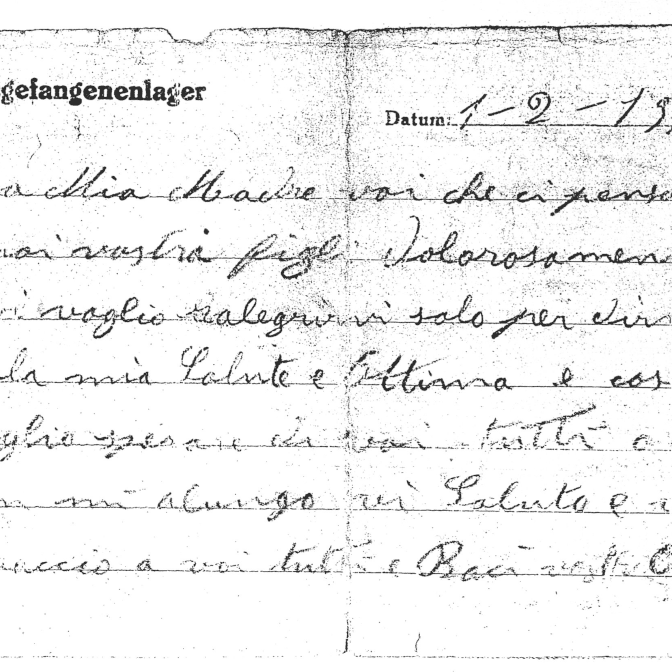 gefangenenlager
Datum: 1-2-19
a Mia Madre voi che ci pensa
voi vostri figli Dolorosamen
vi voglio ralegrirvi solo per dir
la mia Salute e Ottima e cos
glio sperare di voi tutti a
n mi alungo vi Saluto e
braccio a voi tutti e Baci vostro